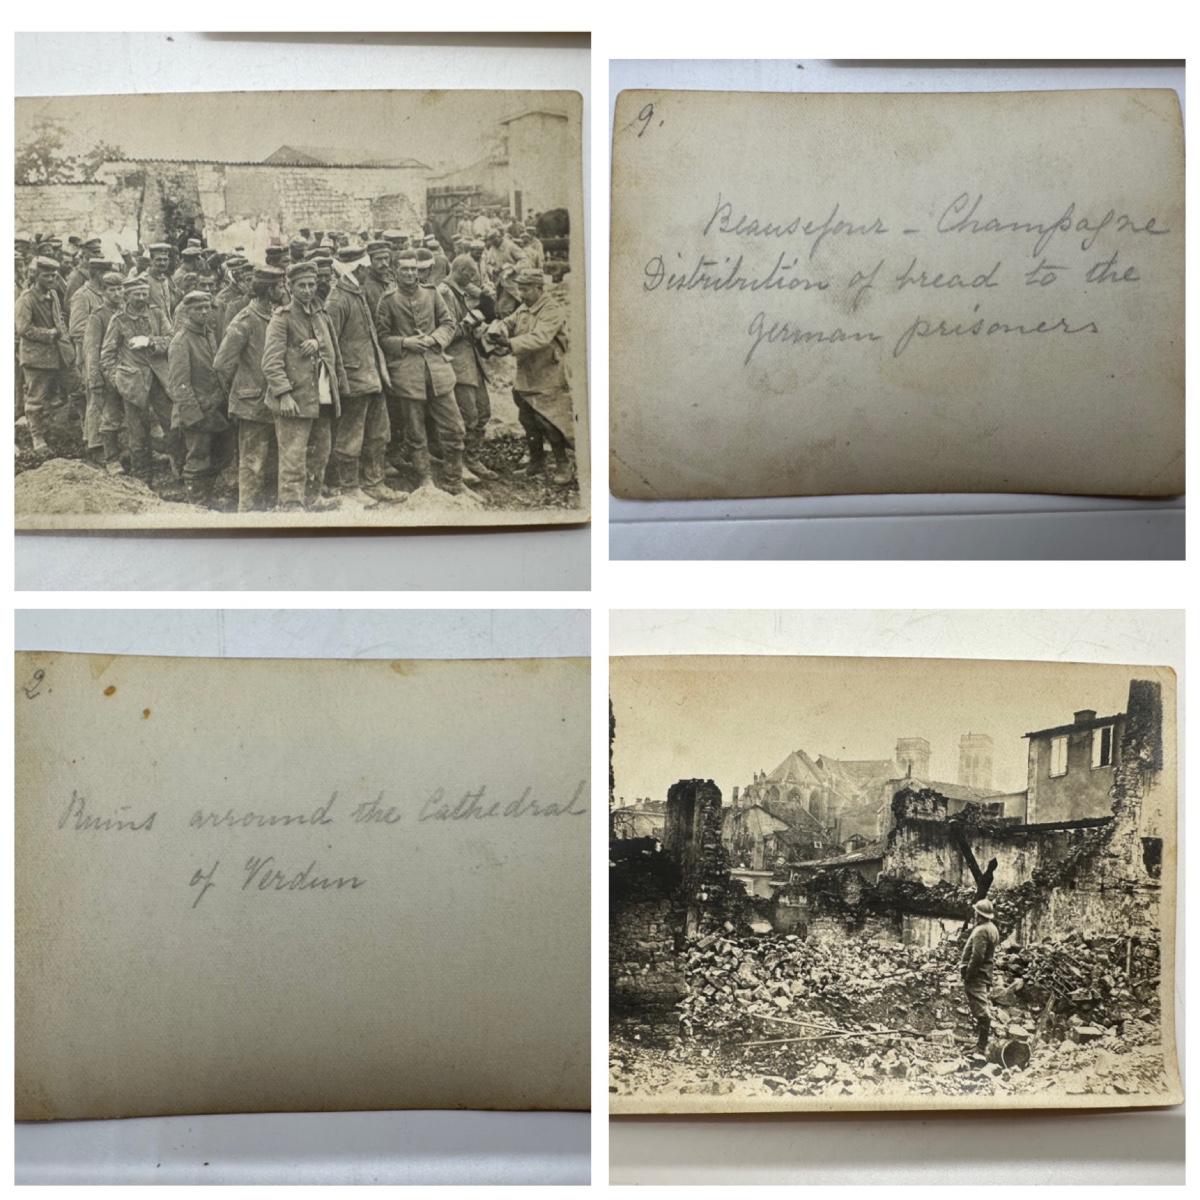 9.
Beausejour - Champagne
Distribution of bread to the
german prisoners
2.
Ruins arround the Cathedral
of Verdun